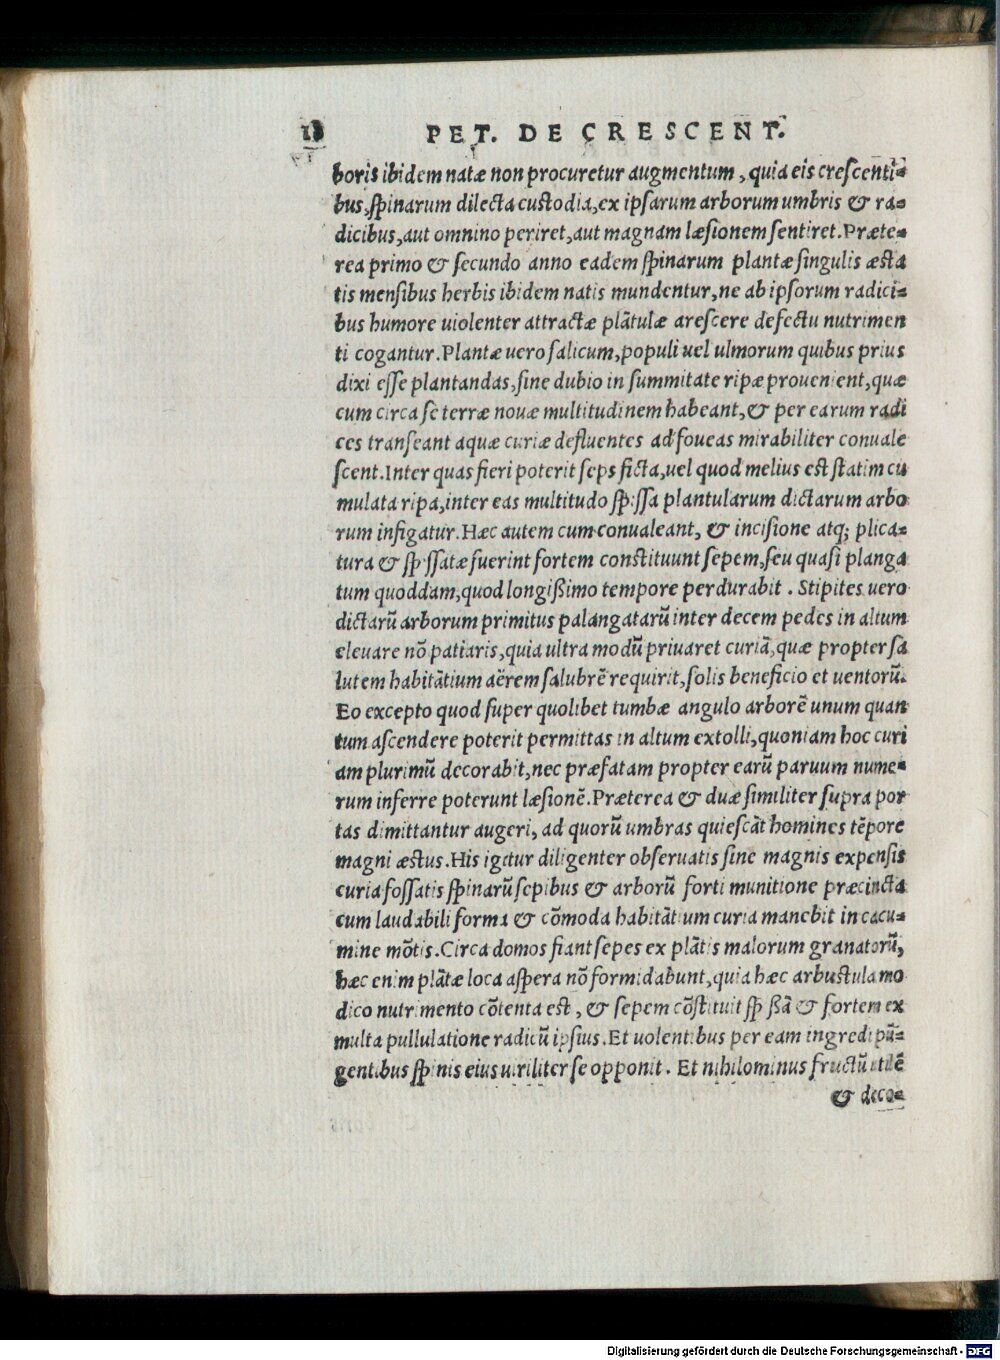 18 PET. DE CRESCENT.
boris ibidem natæ non procuretur augmentum, quia eis crescenti⸗
bus, spinarum dilecta custodia, ex ipsarum arborum umbris & ra⸗
dicibus, aut omnino periret, aut magnam læsionem sentiret. Præte⸗
rea primo & secundo anno eadem spinarum plantæ singulis æsta
tis mensibus herbis ibidem natis mundentur, ne ab ipsorum radici⸗
bus humore uiolenter attractæ plãtulæ arescere defectu nutrimen
ti cogantur. Plantæ uero salicum, populi uel ulmorum quibus prius
dixi esse plantandas, sine dubio in summitate ripæ prouenient, quæ
cum circa se terræ nouæ multitudinem habeant, & per earum radi
ces transeant aquæ curiæ defluentes ad foueas mirabiliter conuale
scent. Inter quas fieri poterit seps ficta, uel quod melius est statim cu
mulata ripa, inter eas multitudo spissa plantularum dictarum arbo
rum infigatur. Hæc autem cum conualeant, & incisione atq; plica⸗
tura & spissatæ fuerint fortem constituunt sepem, seu quasi planga
tum quoddam, quod longißimo tempore perdurabit. Stipites uero
dictarũ arborum primitus palangatarũ inter decem pedes in altum
eleuare nõ patiaris, quia ultra modũ priuaret curiã, quæ propter sa
lutem habitãtium aërem salubrẽ requirit, solis beneficio et uentorũ.
Eo excepto quod super quolibet tumbæ angulo arborẽ unum quan
tum ascendere poterit permittas in altum extolli, quoniam hoc curi
am plurimũ decorabit, nec præfatam propter earũ paruum nume⸗
rum inferre poterunt læsionẽ. Præterea & duæ similiter supra por
tas dimittantur augeri, ad quorũ umbras quiescãt homines tẽpore
magni æstus. His igitur diligenter obseruatis sine magnis expensis
curia fossatis spinarũ sepibus & arborũ forti munitione præcincta
cum laudabili forma & cõmoda habitãtium curia manebit in cacu⸗
mine mõtis. Circa domos fiant sepes ex plãtis malorum granatorũ,
hæc enim plãtæ loca aspera nõ formidabunt, quia hæc arbustula mo
dico nutrimento cõtenta est, & sepem cõstituit spißã & fortem ex
multa pullulatione radicũ ipsius. Et uolentibus per eam ingredi pũ⸗
gentibus spinis eius uiriliter se opponit. Et nihilominus fructũ utilẽ
& deco⸗
Digitalisierung gefördert durch die Deutsche Forschungsgemeinschaft - DFG